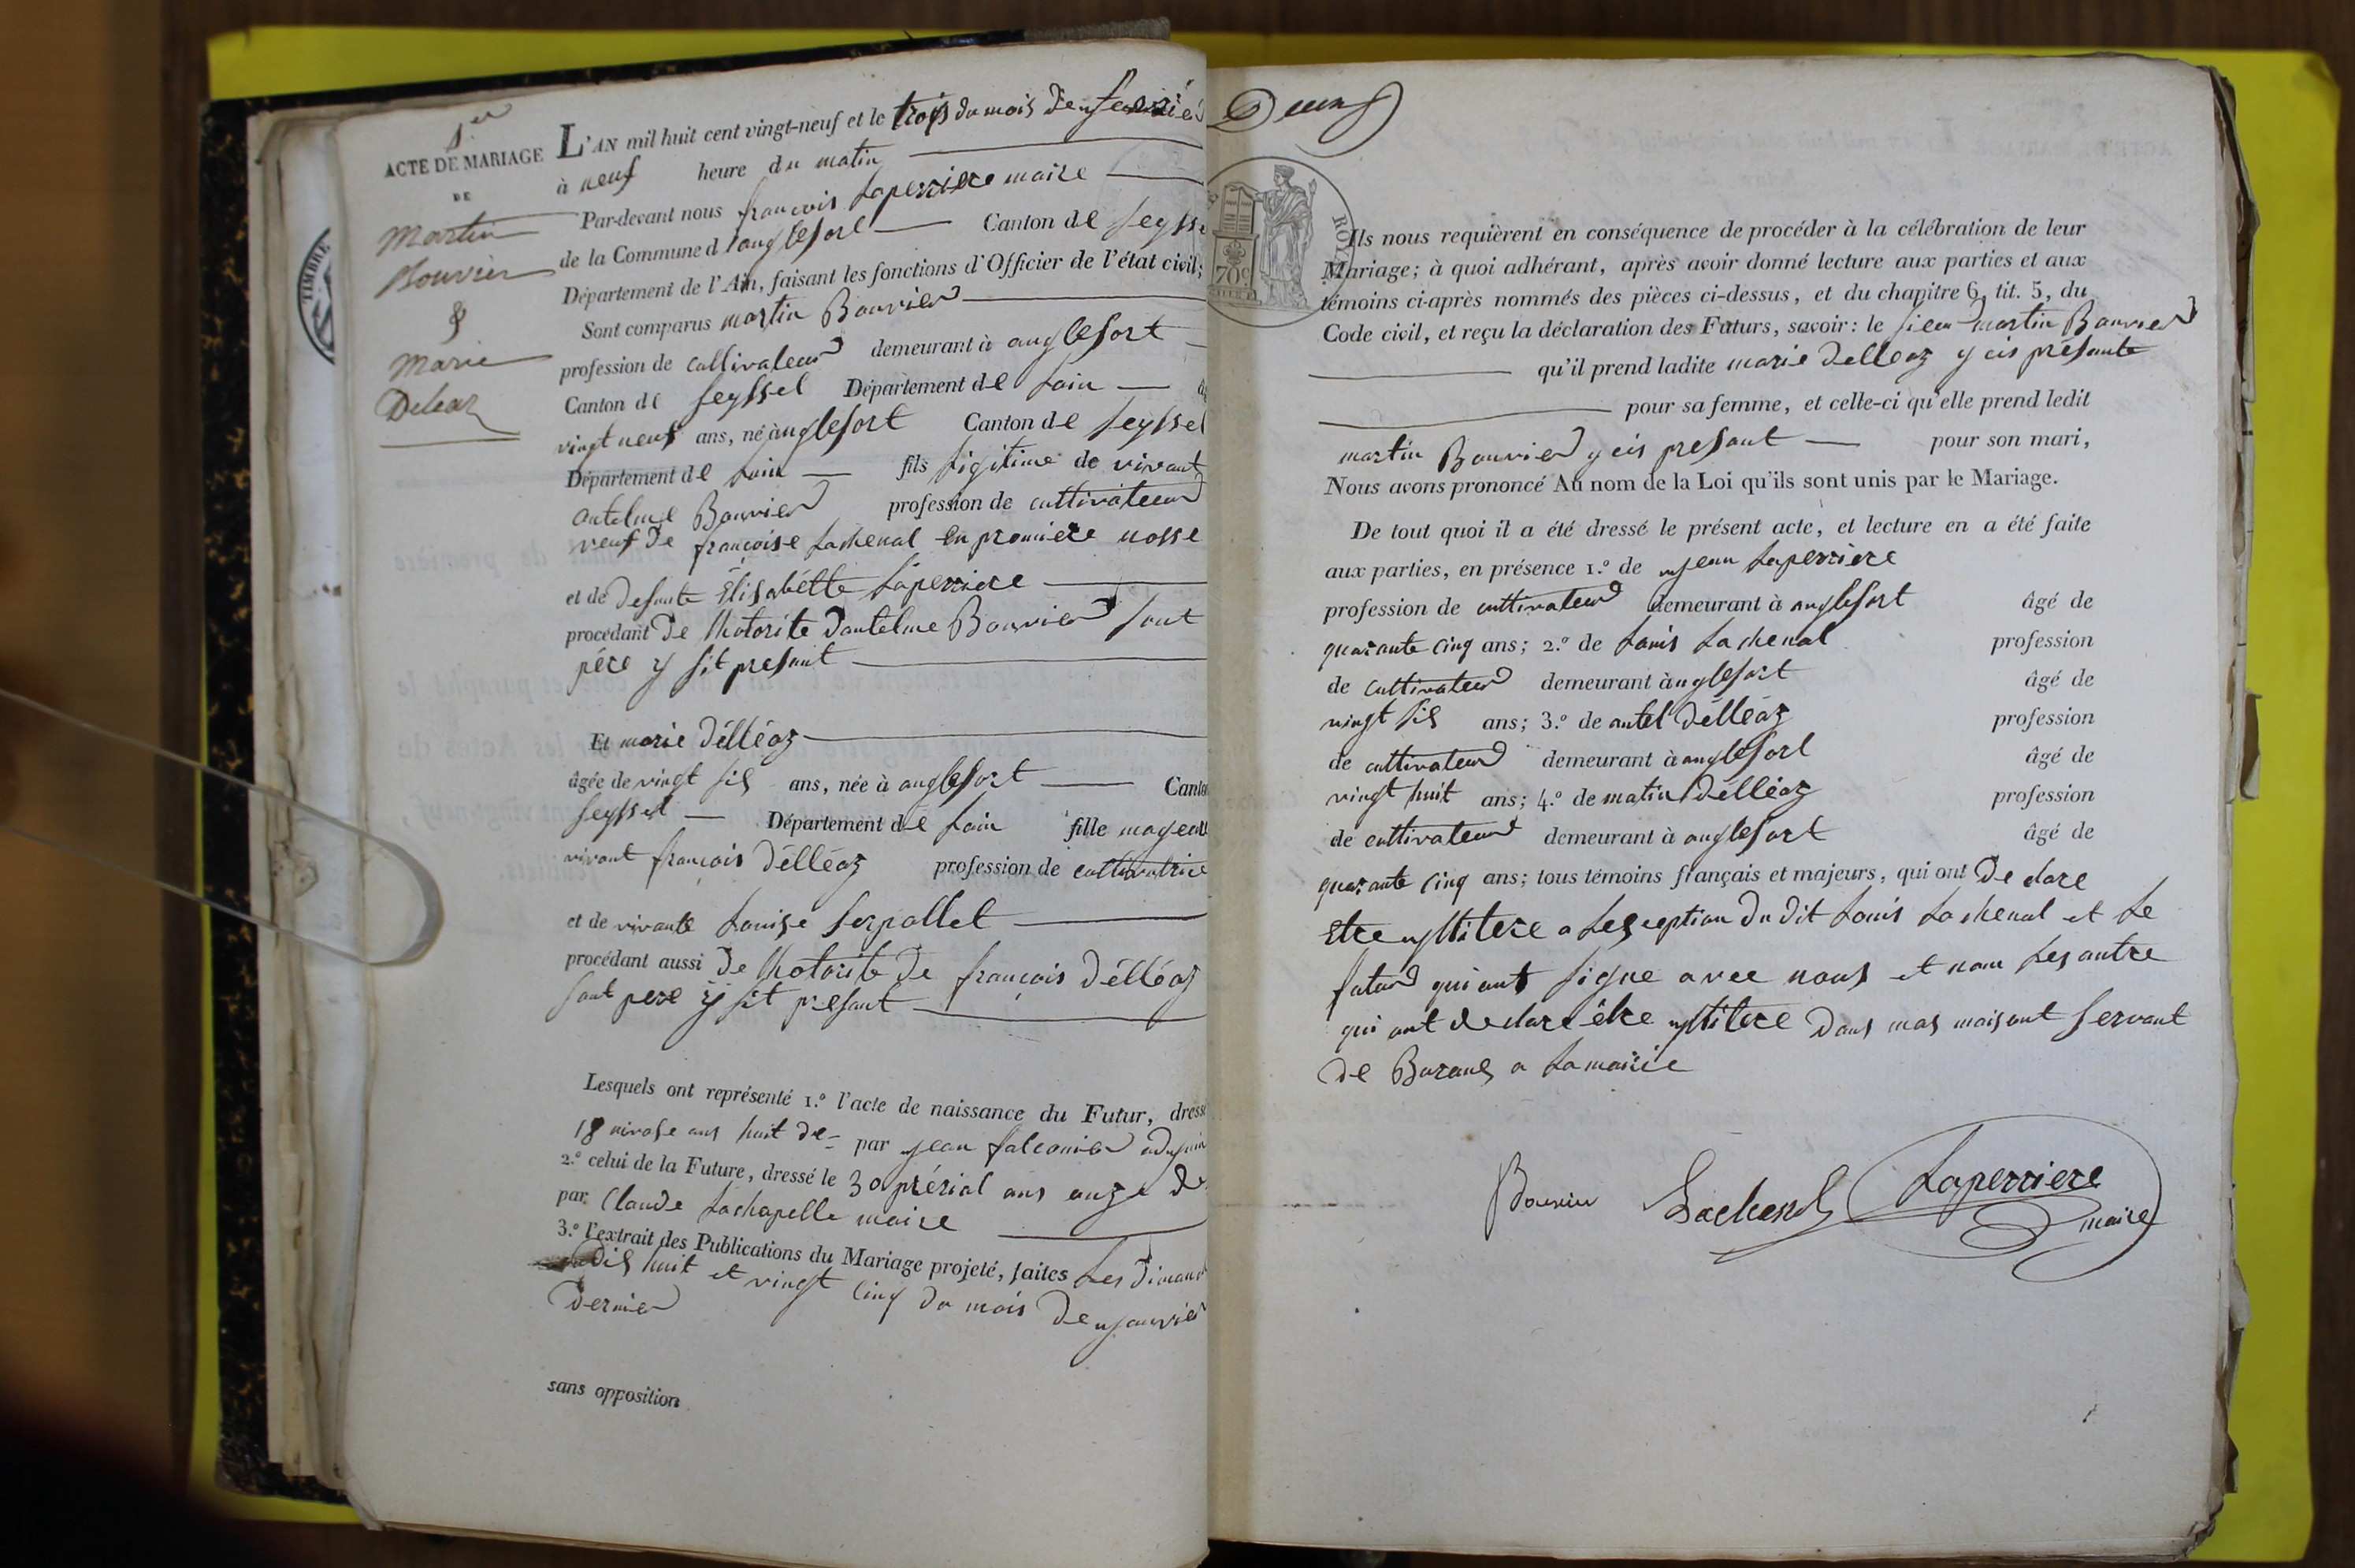 1.er
ACTE DE MARIAGE
DE
Martin
Bouvier
&
Marie
Deleaz
TIMBRE
L'AN mil huit cent vingt-neuf et le trois du mois de
à neuf heure du matin
Par-devant nous françois Laperriere maire
de la Commune d'anglefort Canton de Seyss
Département de l'Ain, faisant les fonctions d'Officier de l'état civil;
Sont comparus martin Bouvier
profession de cultivateur demeurant à anglefort
Canton de Seyssel Département de Lain
vingt neuf ans, né à anglefort Canton de Seyssel
Département de Lain fils ligitime de vivant
antelme Bouvier profession de cultivateur
veuf de françoise Lachenal en promiere nosse
et de defunte Élisabétte Laperriere
procédant de Lhotorite dantelme Bouvier sont
pére y sit presant
Et marie Délléaz
âgée de vingt sis ans, née à anglefort Canto
Seyssel Département de Lain fille mageur
vivant françois Délléaz profession de cultivatrice
et de vivante Louise Serpollet
procédant aussi de Lhotorite de françois Délléaz
sont pere y sit presant
Lesquels ont représenté 1.º l'acte de naissance du Futur, dressé
18 nivose ans huit de par jean falconnier adjoin
2.º celui de la Future, dressé le 30 prérial ans onze de
par Claude Lachapelle maire
3.º l'extrait des Publications du Mariage projeté, faites Les dimanch
dis huit et vingt cinq du mois de njanvier
dernier
sans opposition
Deux
ROY
70c
Ils nous requièrent en conséquence de procéder à la célébration de leur
Mariage; à quoi adhérant, après avoir donné lecture aux parties et aux
témoins ci-après nommés des pièces ci-dessus, et du chapitre 6, tit. 5, du
Code civil, et reçu la déclaration des Futurs, savoir: le sieur martin Bouvier
qu'il prend ladite marie delleaz y cis présante
pour sa femme, et celle-ci qu'elle prend ledit
martin Bouvier y cis presant pour son mari,
Nous avons prononcé Au nom de la Loi qu'ils sont unis par le Mariage.
De tout quoi il a été dressé le présent acte, et lecture en a été faite
aux parties, en présence 1.º de njean Laperriere
profession de cultivateur demeurant à anglefort âgé de
quarante cinq ans; 2.º de Louis Lachenal profession
de cultivateur demeurant à nglefort âgé de
vingt sis ans; 3.º de antel Délléaz profession
de cultivateur demeurant à anglefort âgé de
vingt huit ans; 4.º de matin Délléaz profession
de cultivateur demeurant à anglefort âgé de
quarante cinq ans; tous témoins français et majeurs, qui ont de clare
Etre nyllitere a Lesception du dit Louis Lachenal et Le
futur qui ont signe avec nous et nom Les autre
qui ont declare être nyllitere dans mas maisont servant
de Buraus a Lamairie
Bouvier Lachenal Laperriere
maire